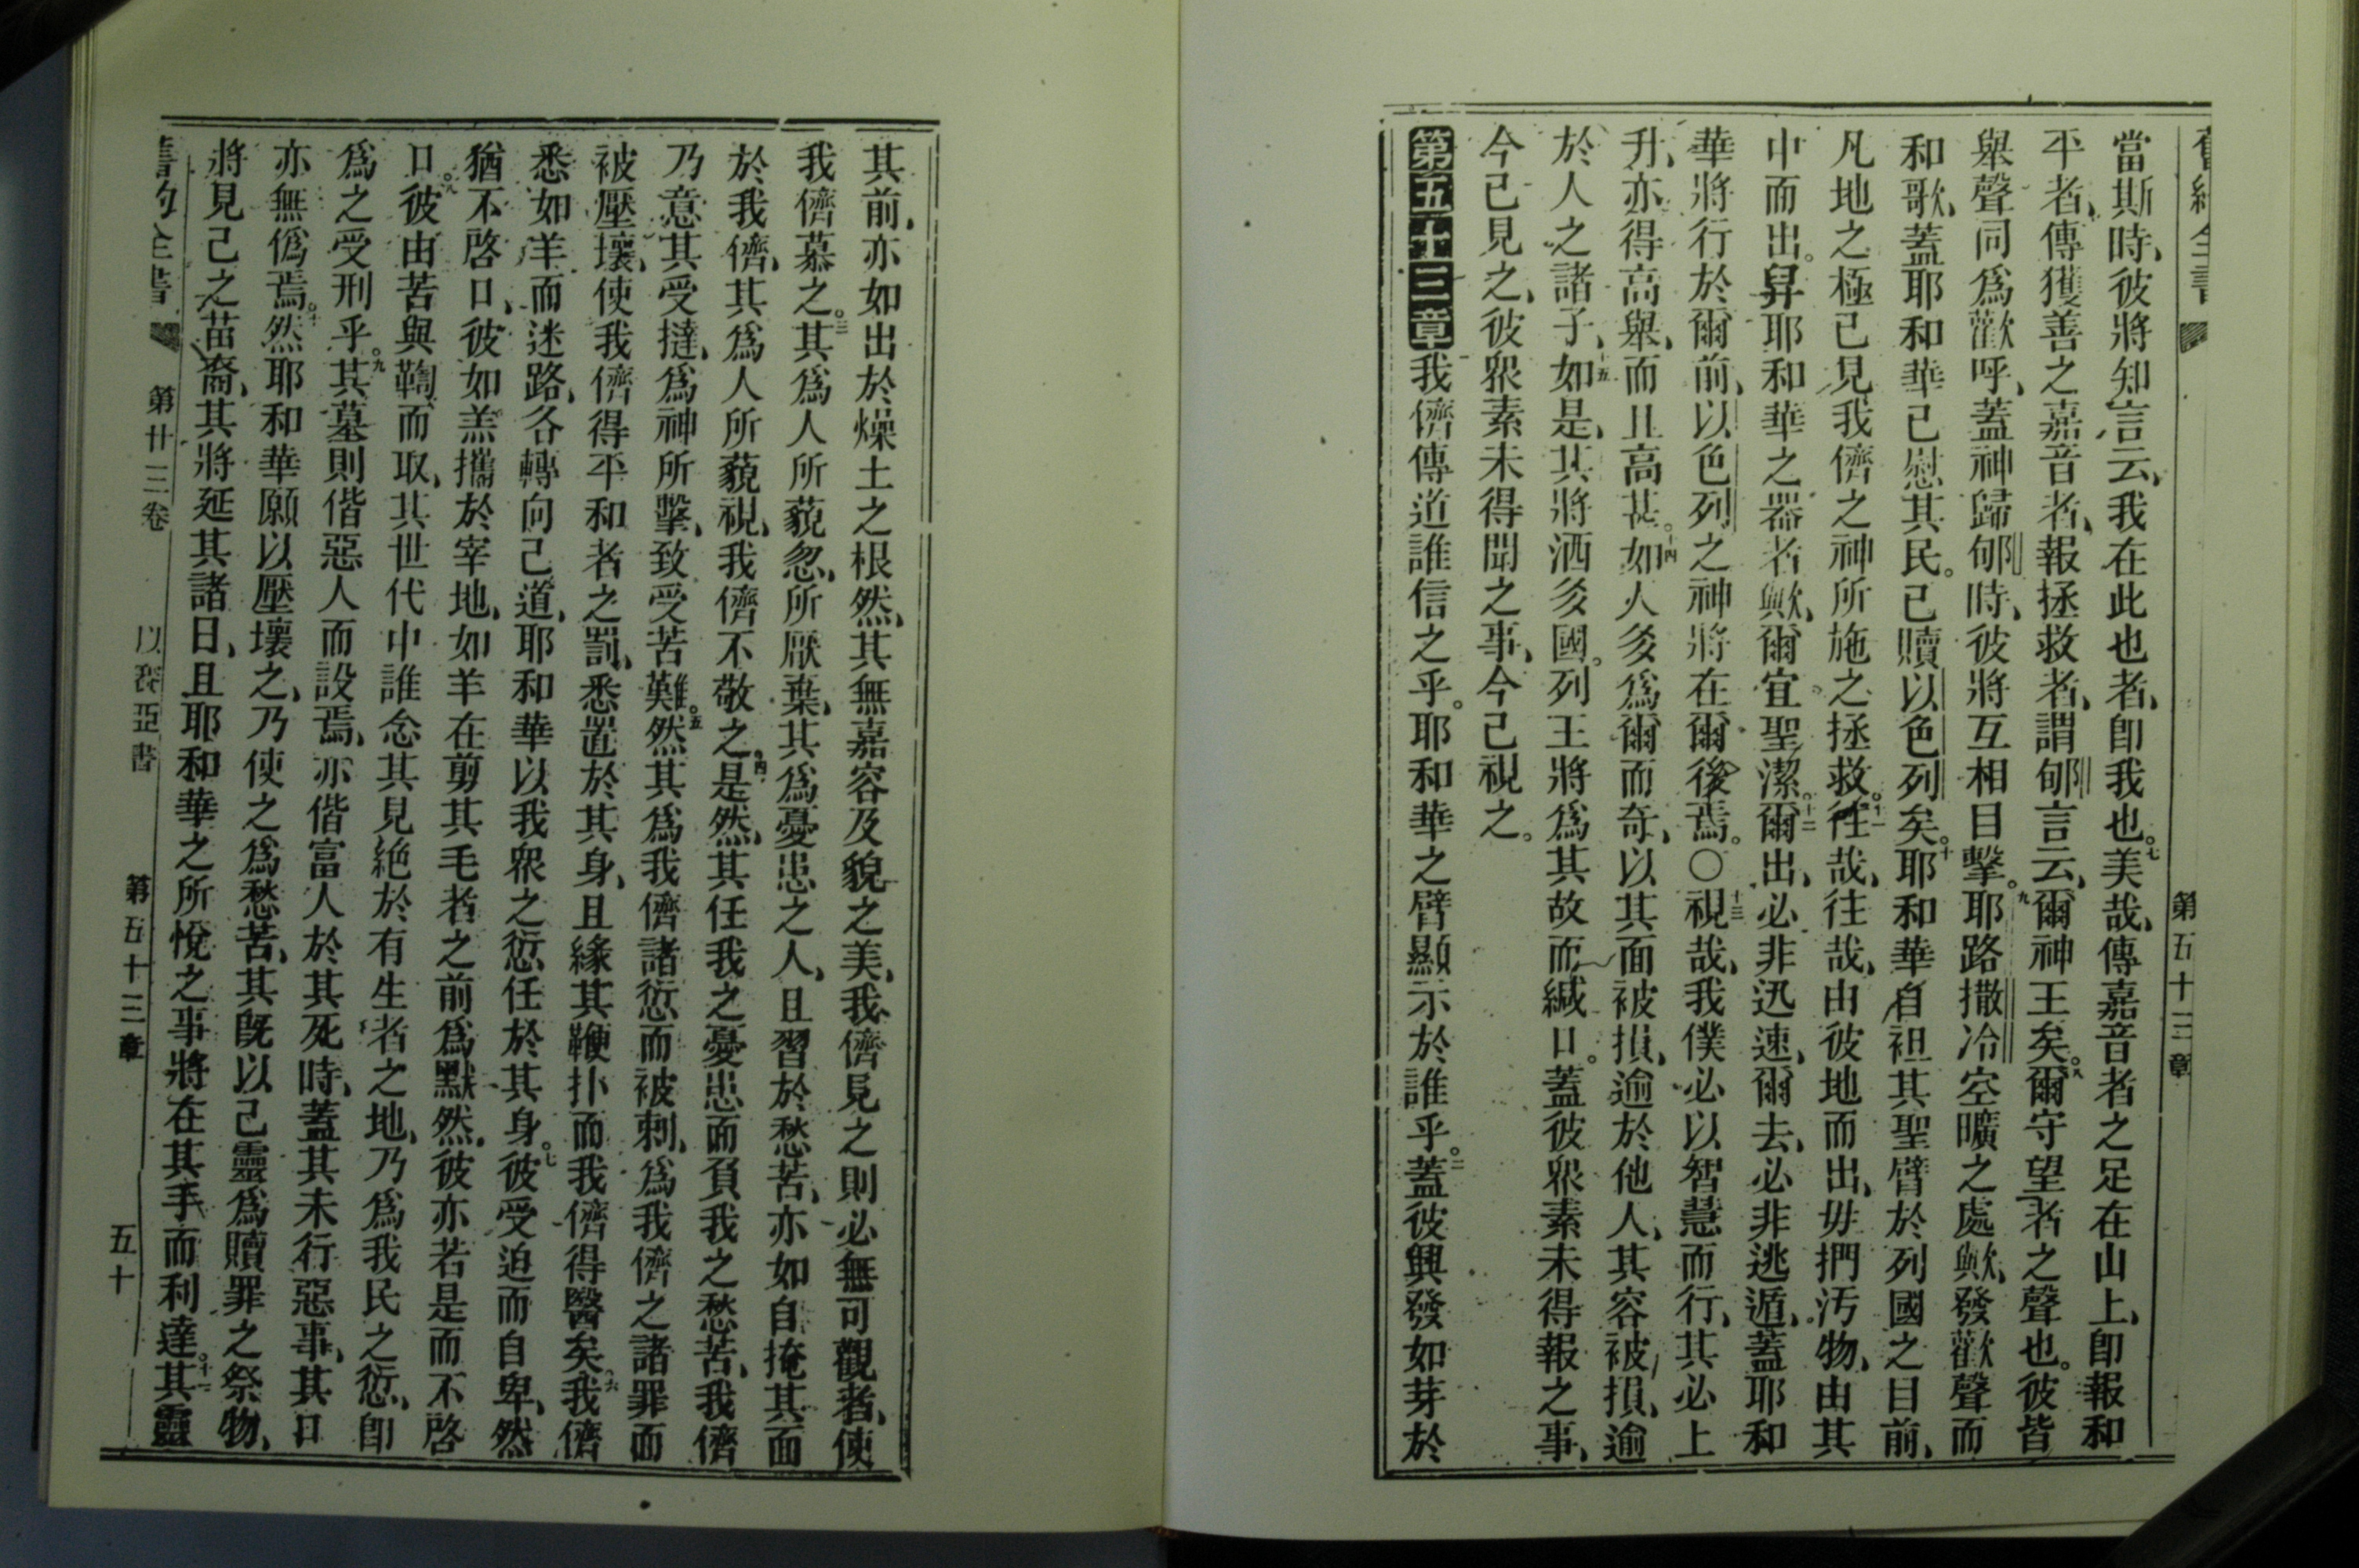 第五十三章
當斯時、彼將知言云、我在此也者、卽我也。七美哉、傳嘉音者之足在山上、卽報和
平者、傳獲善之嘉音者、報拯救者、謂郇言云、爾神王矣。八爾守望者之聲也。彼皆
舉聲同爲歡呼、蓋神歸郇時、彼將互相目擊。九耶路撒冷空曠之處歟、發歡聲而
和歌、蓋耶和華已慰其民。已贖以色列矣。十耶和華自袒其聖臂於列國之目前、
凡地之極已見我儕之神所施之拯救。十一往哉、往哉、由彼地而出、毋捫汚物、由其
中而出。舁耶和華之器者歟、爾宜聖潔。十二爾出、必非迅速、爾去、必非逃遁、蓋耶和
華將行於爾前、以色列之神將在爾後焉。〇十三視哉、我僕必以智慧而行、其必上
升、亦得高舉、而且高甚。十四如人多爲爾而奇、以其面被損、逾於他人、其容被損、逾
於人之諸子、十五如是、其將洒多國。列王將爲其故而緘口。蓋彼衆素未得報之事、
今已見之、彼衆素未得聞之事、今已視之。
第五十三章我儕傳道誰信之乎。耶和華之臂顯示於誰乎。二蓋彼興發如芽於
其前、亦如出於燥土之根然、其無嘉容及貌之美、我儕見之則必無可觀者、使
我儕慕之。三其爲人所藐忽、所厭棄、其爲憂患之人、且習於愁苦、亦如自掩其面
於我儕、其爲人所藐視、我儕不敬之。四是然、其任我之憂患而負我之愁苦、我儕
乃意其受撻、爲神所擊、致受苦難。五然其爲我儕諸愆而被刺、爲我儕之諸罪而
被壓壞、使我儕得平和者之罰、悉置於其身、且緣其鞭扑而我儕得醫矣。六我儕
悉如羊而迷路、各轉向己道、耶和華以我衆之愆任於其身。七彼受迫而自卑、然
猶不啓口、彼如羔攜於宰地、如羊在剪其毛者之前爲默然、彼亦若是而不啓
口。八彼由苦與鞫而取、其世代中誰念其見絶於有生者之地、乃爲我民之愆、卽
爲之受刑乎。九其墓則偕惡人而設焉、亦偕富人於其死時、蓋其未行惡事、其口
亦無僞焉。十然耶和華願以壓壞之、乃使之爲愁苦、其旣以己靈爲贖罪之祭物、
將見己之苗裔、其將延其諸日、且耶和華之所悅之事將在其手而利達。十一其靈
第廿三卷
以賽亞書
第五十三章
五十